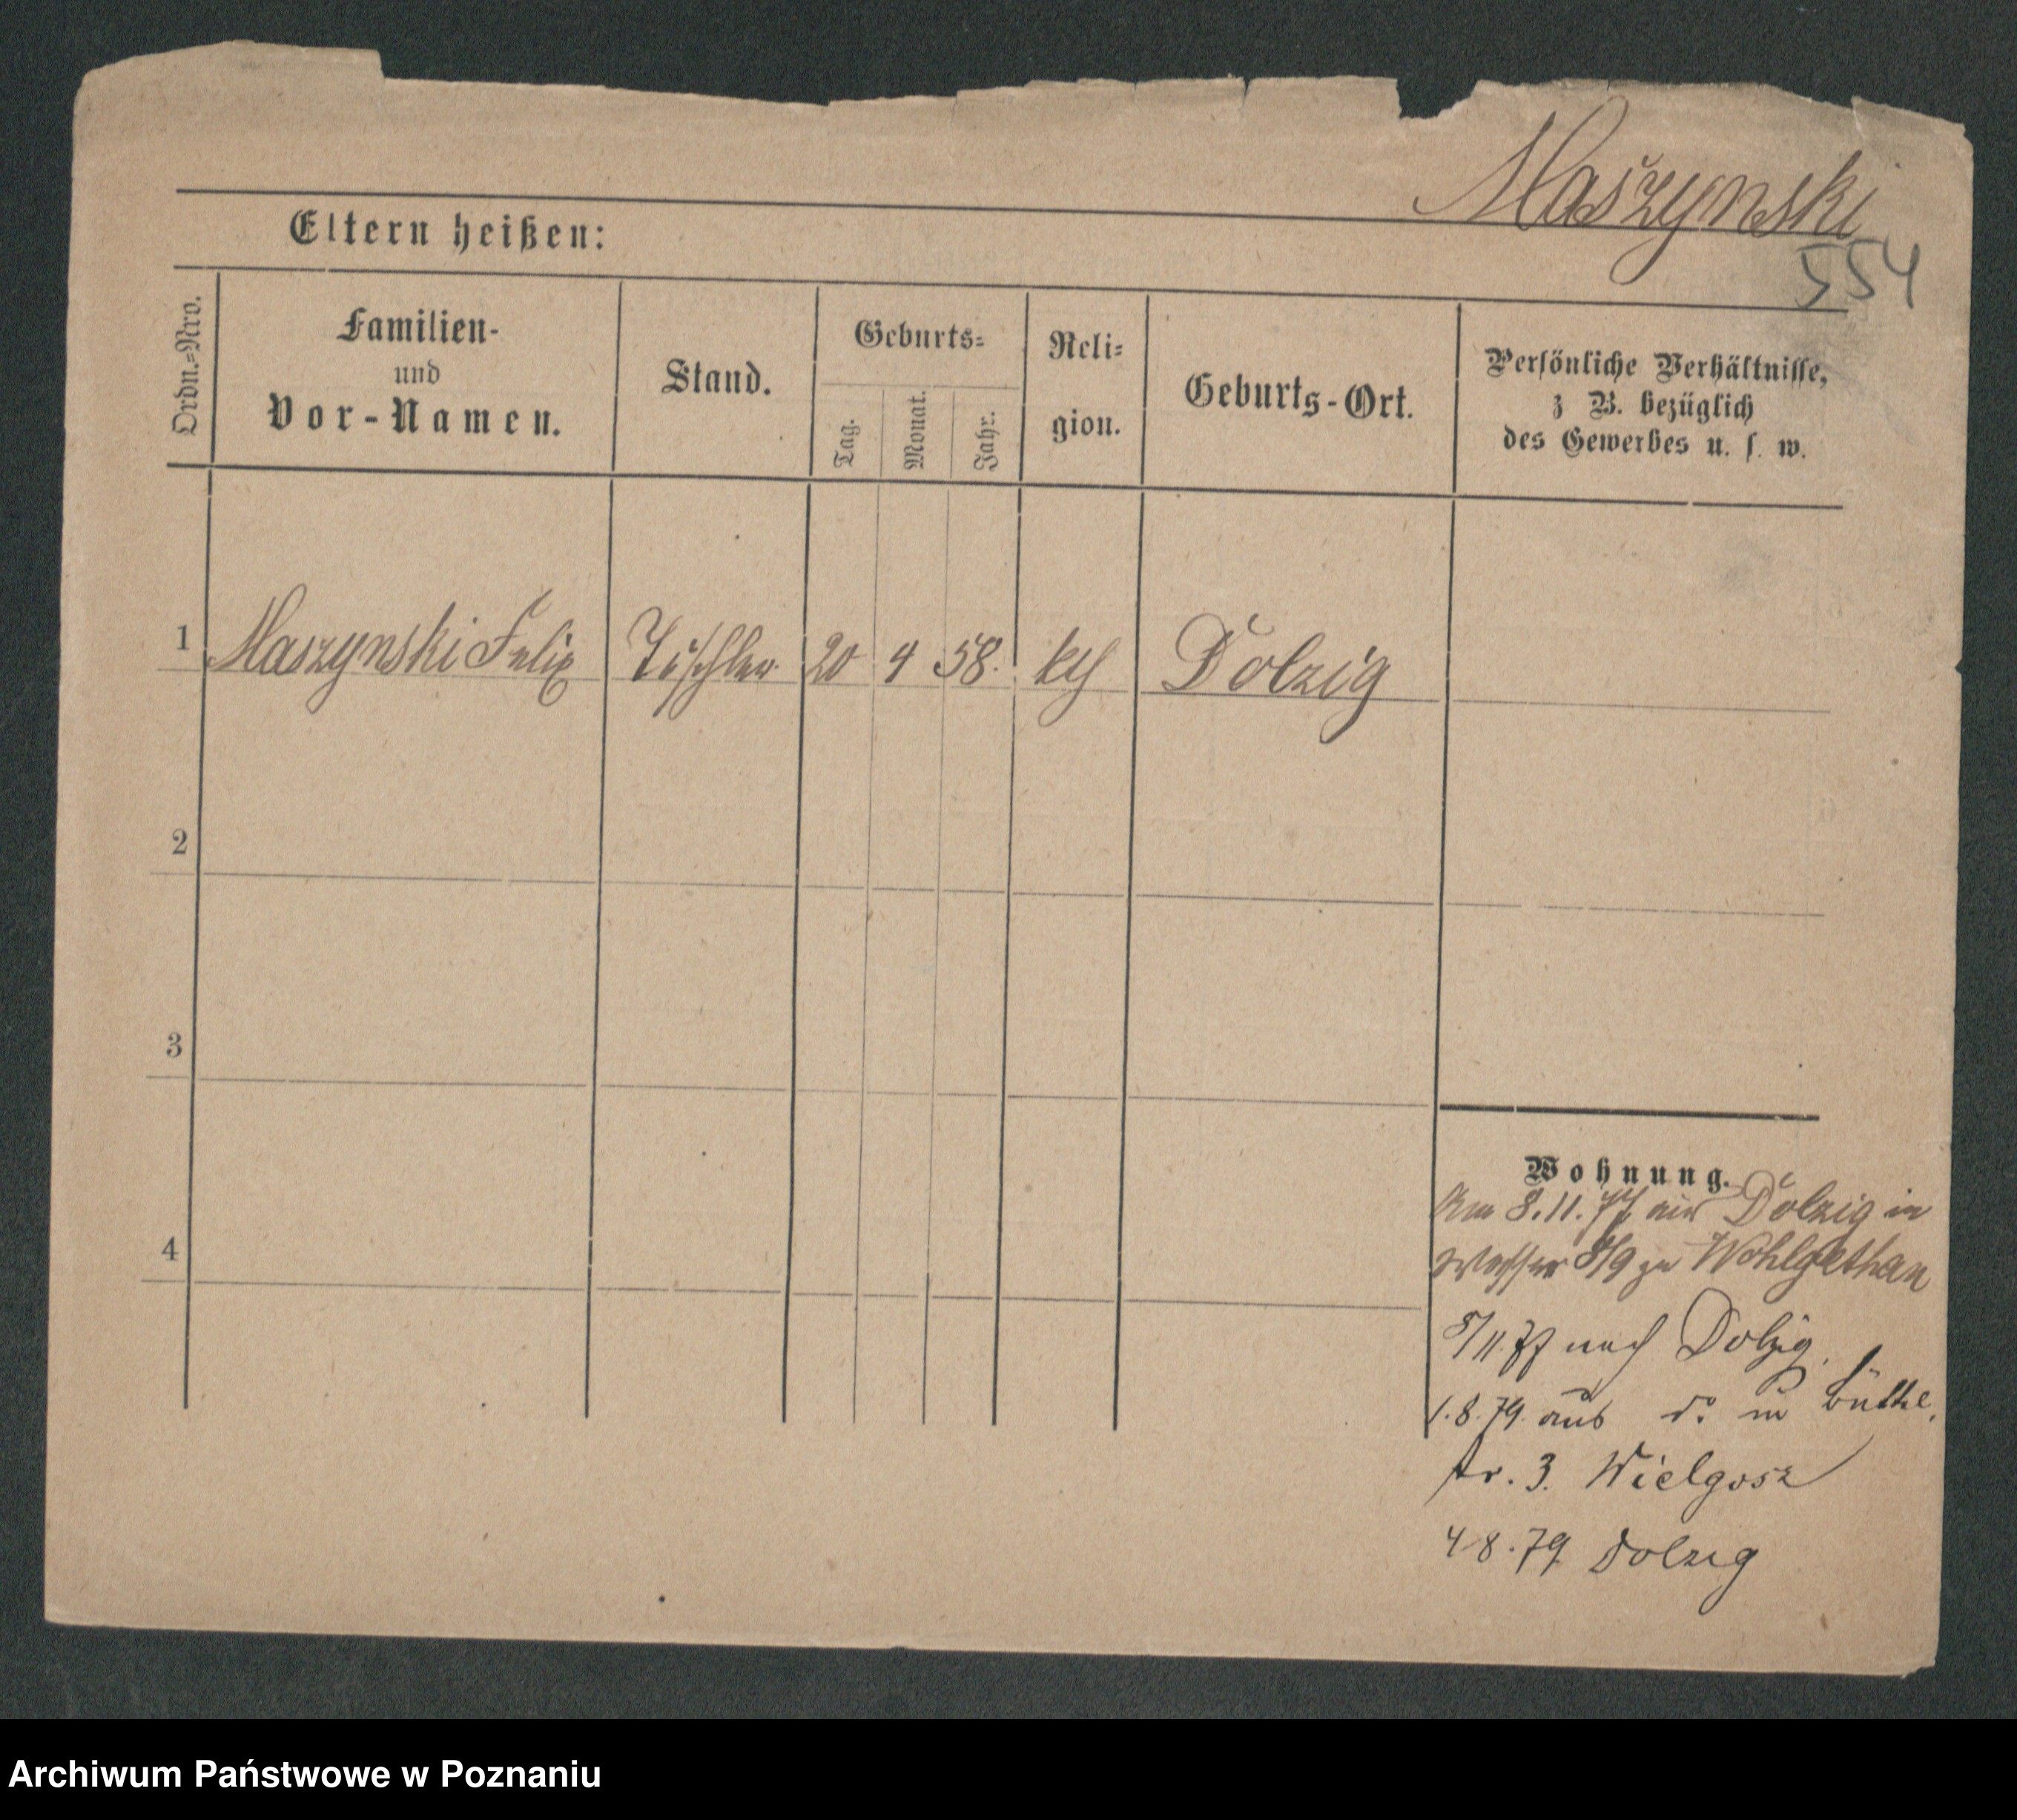 Maszynski
554
Eltern heißen:
Ordn.=Nro.
Familien-
und
Vor-Namen.
Stand.
Geburts=
Tag.
Monat.
Jahr.
Reli=
gion.
Geburts-Ort.
Persönliche Verhältnisse,
z B. bezüglich
des Gewerbes u. s. w.
1 Maszynski Felix Tischler 20 4 58. kth Dolzig
2
3
4
Wohnung.
Am 8.11.77 aus Dolzig in
Wasser 8/9 zu Wohlgethan
/11.77 nach Dolzig.
1.8.79. aus do in Büttel
str. 3. Wielgosz
4 8.79 Dolzig
Archiwum Państwowe w Poznaniu